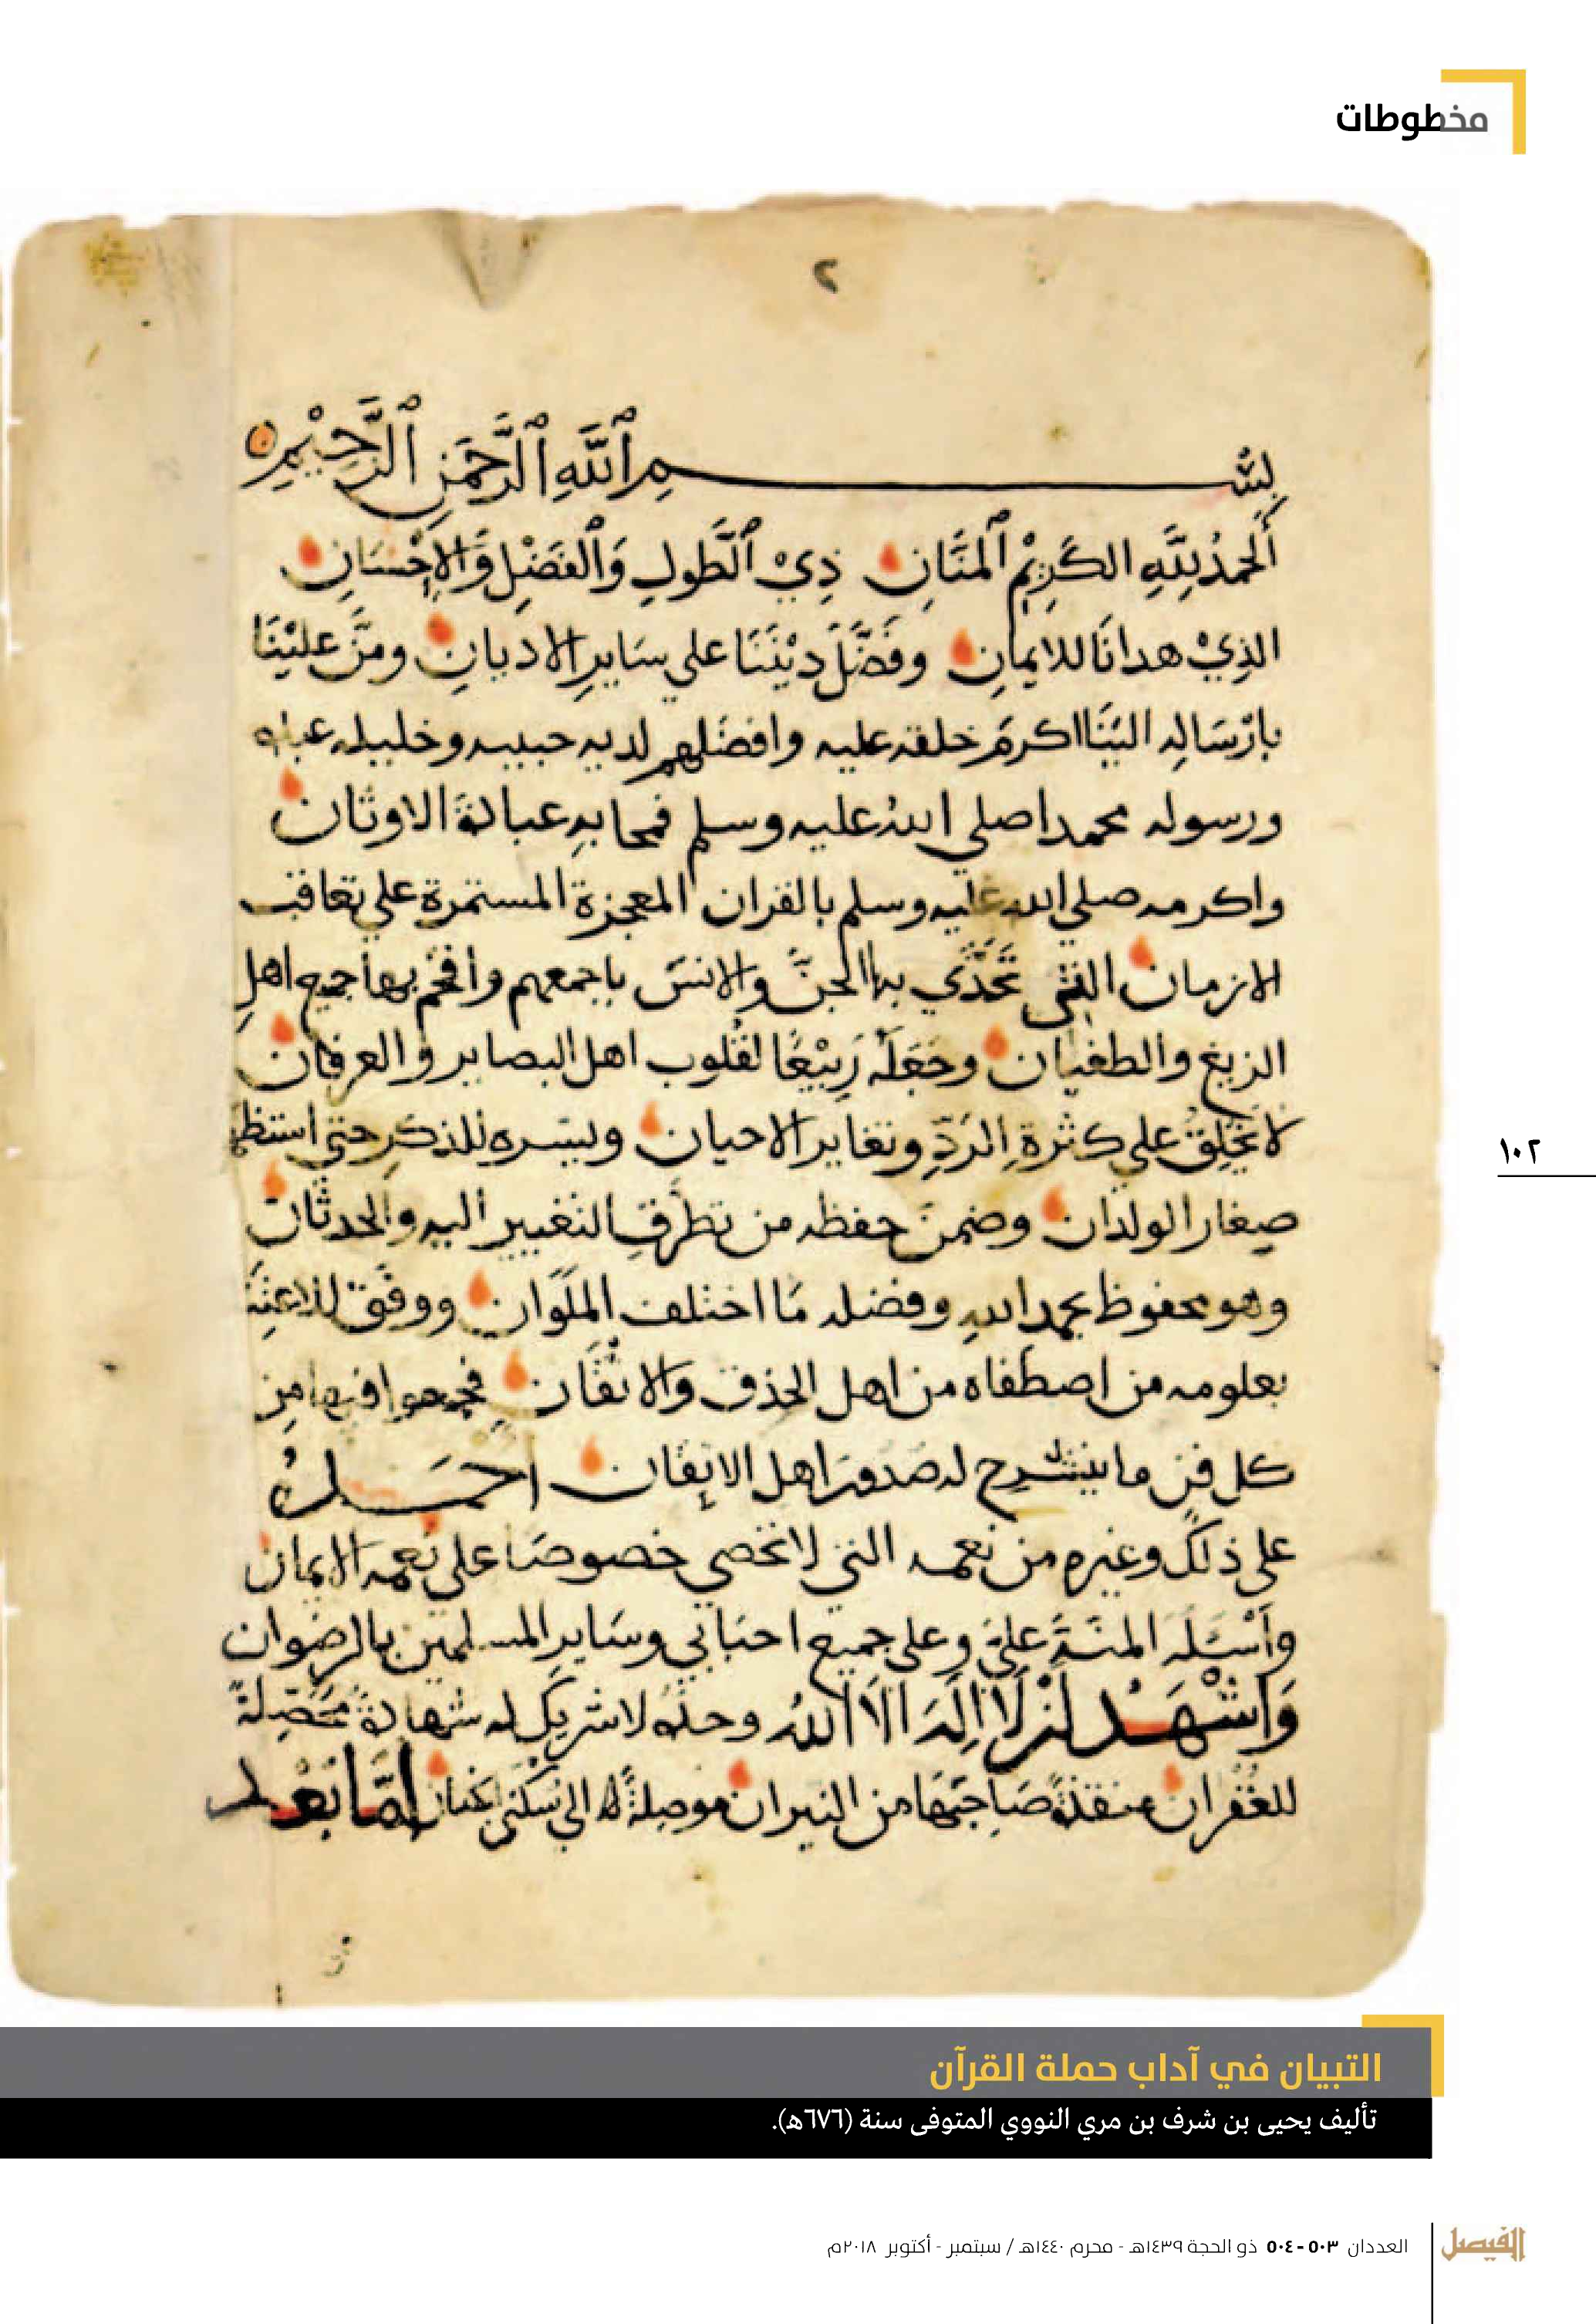 مخطوطات
٢
بِسْمِ ٱللَّهِ ٱلرَّحْمَنِ ٱلرَّحِيْمِ
أَلحمدُ لِلَّهِ الكَرِيْمِ ٱلمَنَّانِ ذِيْ ٱلطَّولِ وَٱلفَضْلِ وَالإِحْسَانِ
الذِيْ هدانَا للايمانِ وفَضَّلَ دِيْنَنَا على سَايرِ الاديانِ ومَنَّ علَيْنَا
بارْسَالِه الَيْنَا اكرمَ خلقه عليه وافضَلهم لديه حبيبه وخليله عبده
ورسوله محمدا صلي اللهُ عليه وسلم فمحا بهِ عبادة الاوثان
واكرمه صلي الله عليه وسلم بالقران المعجزة المستمرة علي تعاقب
الازمان التي تَحَدَّي بها الجنَّ والانسَ باجمعهم وأفحَم بها جميع اهلِ
الزيغ والطغيان وجَعَلَهُ رَبِيْعًا لقُلوب اهل البصاير والعرفان
لا يَخْلِقُ علي كثرةِ الرَدِّ وتغاير الاحيان ويسَّره للذكرِ حتي استظهره
صغار الولدان وضمنَ حفظه من تطَرُّقِ التغيير اليه والحدثان
وهو محفوظ بحمد الله وفضله مَا اختلف الملَوَان ووفَّق للاعتِنَا
بعلومه من اصطفاه من اهل الحذق والاتقَان فجمعوا فيها مِن
كل فنٍ ما ينشرح له صُدورُ اهل الايقَان احمَدُهُ
على ذلكَ وغيره من نعمه التي لا تحصي خصوصًا على نعمه الايمان
وأسْئَله المنَةَ عليَّ وعلى جميع احبابي وسَايرِ المسلمين بالرضوان
وَاشْهَدُ انْ لَا الَهَ الَا اللهُ وحدَهُ لا شريكَ له شهادةً مُحَصِّلةً
للغُفْران منقذةً صَاحبَهَا من النيران موصِلةً له الي سُكْنَي الجنان امَّا بَعْد
١٠٢
التبيان في آداب حملة القرآن
تأليف يحيى بن شرف بن مري النووي المتوفى سنة (٦٧٦هـ).
الفيصل العددان ٥٠٣ - ٥٠٤ ذو الحجة ١٤٣٩هـ - محرم ١٤٤٠هـ / سبتمبر - أكتوبر ٢٠١٨م